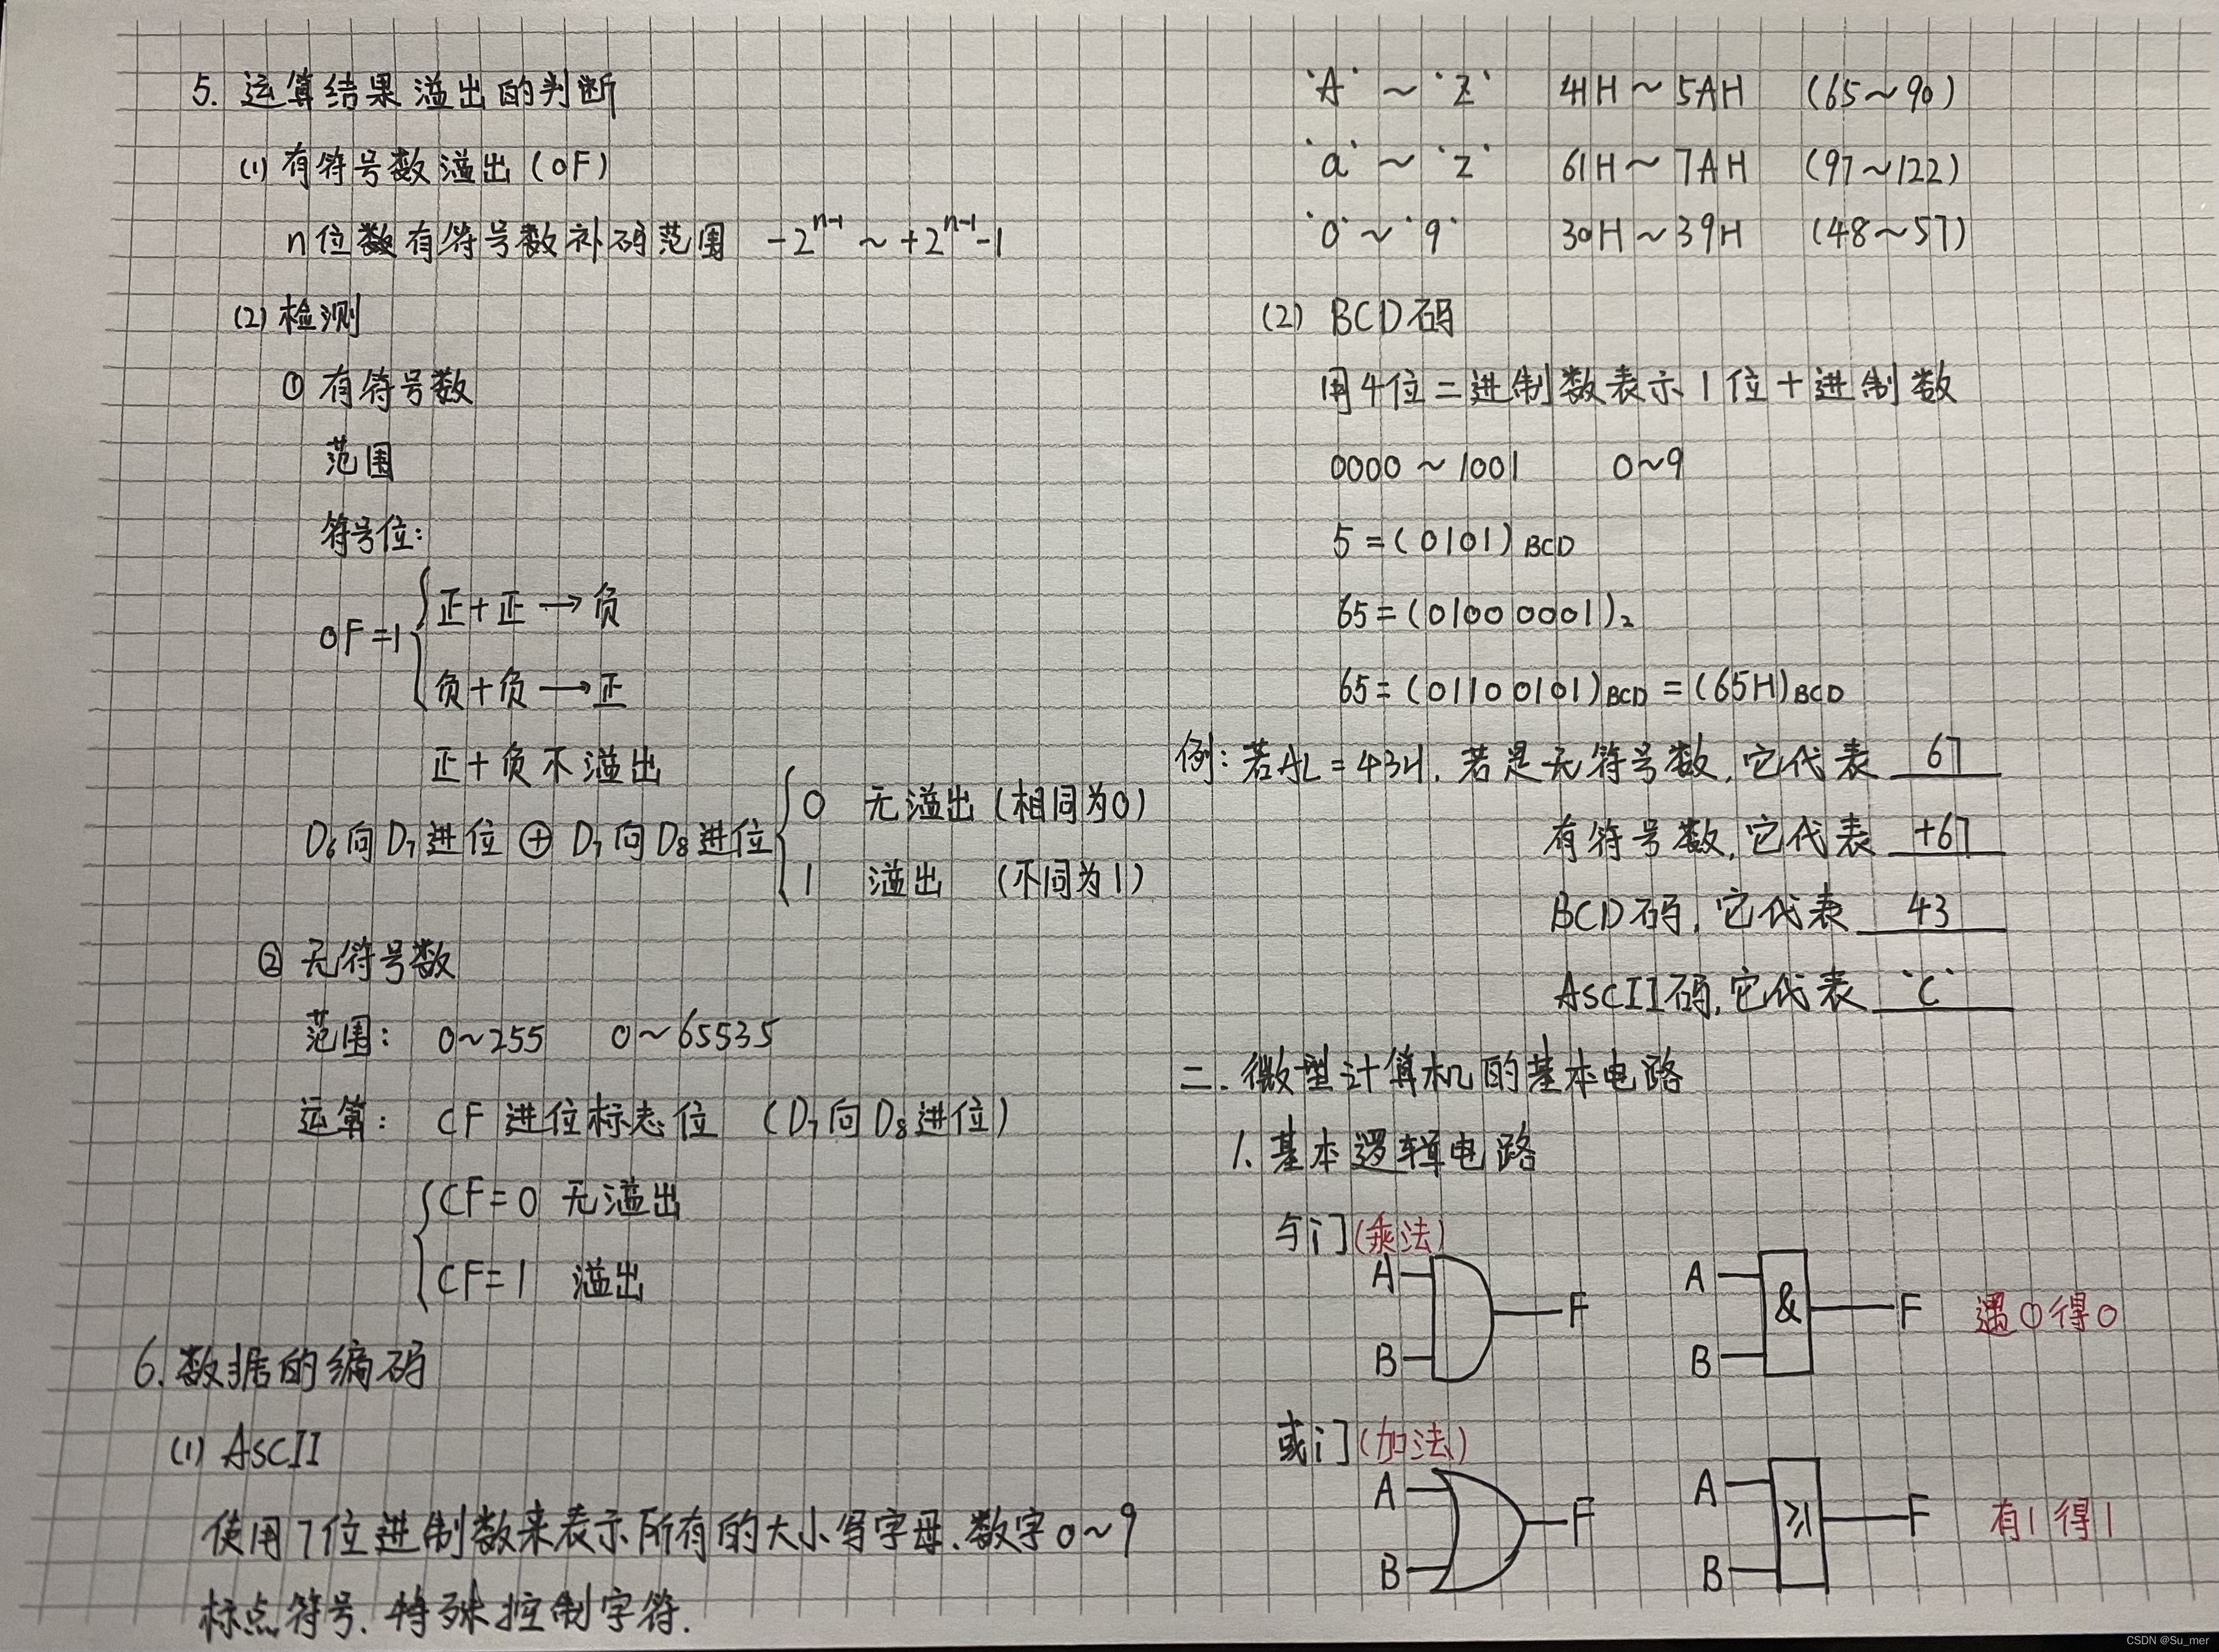 5. 运算结果溢出的判断
(1) 有符号数溢出 (OF)
n位数有符号数补码范围 -2^{n-1} ~ +2^{n-1}-1
(2) 检测
① 有符号数
范围
符号位:
OF=1
正+正 → 负
负+负 → 正
正+负不溢出
D₆向D₇进位 ⊕ D₇向D₈进位
0 无溢出 (相同为0)
1 溢出 (不同为1)
② 无符号数
范围: 0~255 0~65535
运算: CF 进位标志位 (D₇向D₈进位)
CF=0 无溢出
CF=1 溢出
6. 数据的编码
(1) ASCII
使用7位进制数来表示所有的大小写字母、数字0~9
标点符号、特殊控制字符.
'A' ~ 'Z' 41H ~ 5AH (65~90)
'a' ~ 'z' 61H ~ 7AH (97~122)
'0' ~ '9' 30H ~ 39H (48~57)
(2) BCD码
用4位二进制数表示1位十进制数
0000 ~ 1001 0~9
5 = (0101)BCD
65 = (0100 0001)₂
65 = (0110 0101)BCD = (65H)BCD
例: 若AL = 43H, 若是无符号数, 它代表 67
有符号数, 它代表 +67
BCD码, 它代表 43
ASCII码, 它代表 'C'
二. 微型计算机的基本电路
1. 基本逻辑电路
与门(乘法)
A B F
A B & F 遇0得0
或门(加法)
A B F
A B ≥1 F 有1得1
CSDN @Su_mer